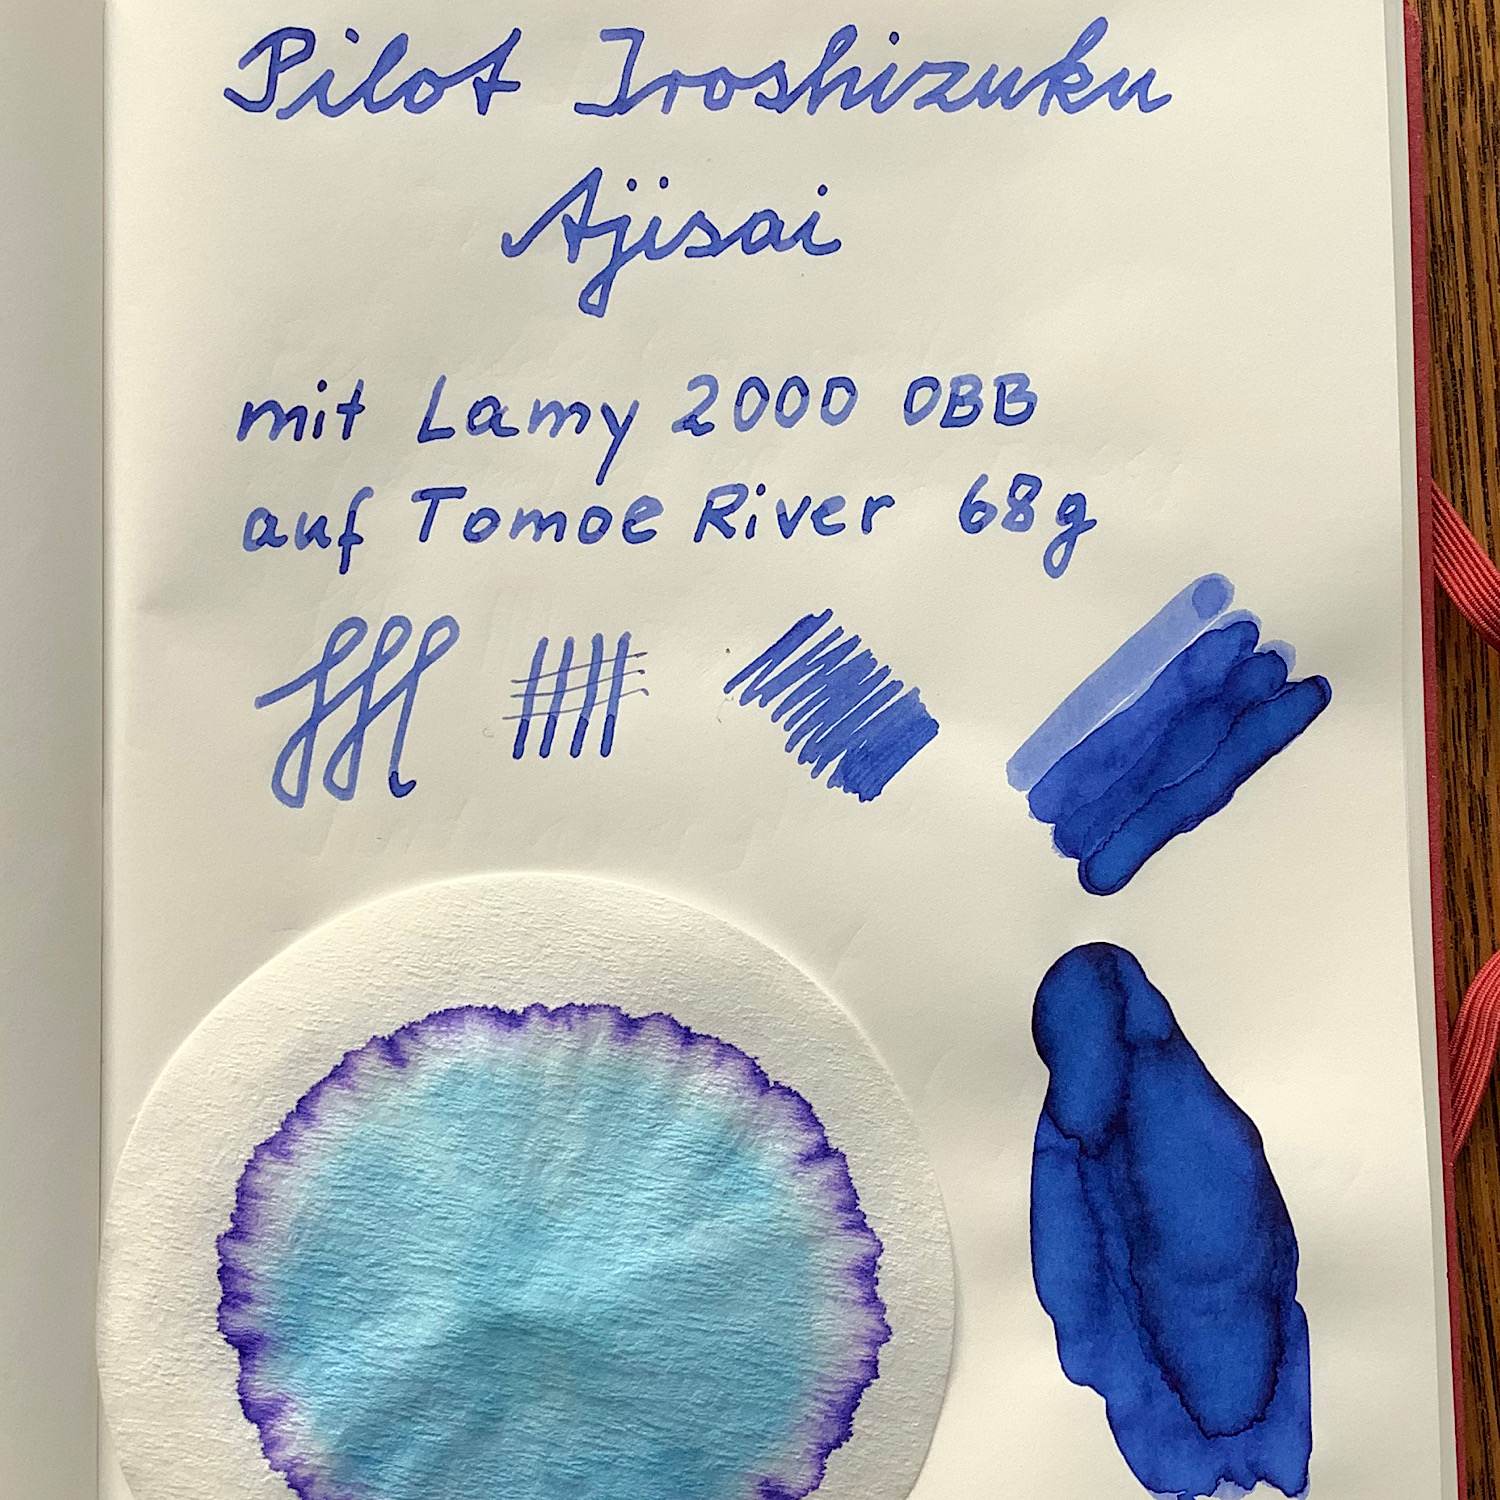 Pilot Iroshizuku
Ajisai
mit Lamy 2000 OBB
auf Tomoe River 68g